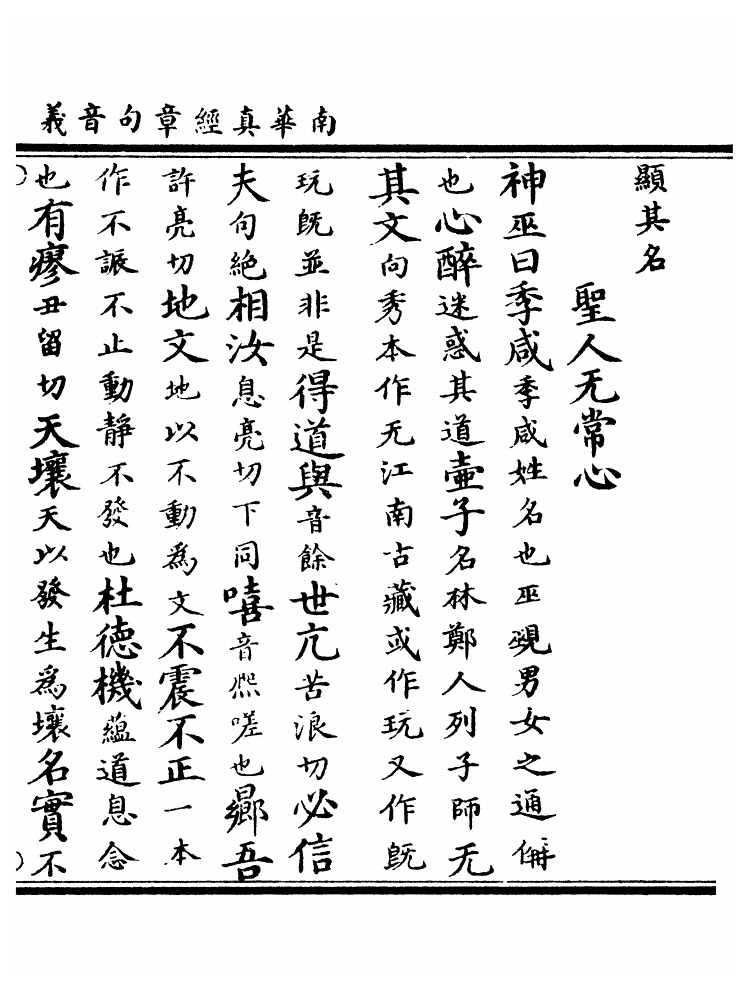 南華真經章句音義
顯其名
聖人无常心
神巫曰季咸季咸姓名也巫覡男女之通偁
也心醉迷惑其道壷子名林鄭人列子師无
其文向秀本作无江南古藏或作玩又作旣
玩旣並非是得道與音餘世亢苦浪切必信
夫句絶相汝息亮切下同嘻音熈嗟也鄉吾
許亮切地文地以不動爲文不震不正一本
作不誫不止動靜不發也杜德機藴道息念
也有瘳丑留切天壤天以發生爲壤名實不